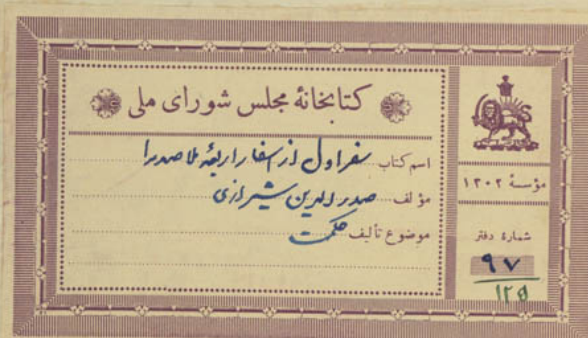 کتابخانهٔ مجلس شورای ملی
اسم کتاب سفر اول از اسفار اربعهٔ ملا صدرا
مؤلف صدر الدین شیرازی
موضوع تألیف حکمت
مؤسسهٔ ۱۳۰۲
شمارهٔ دفتر
۹۷
۱۲۵